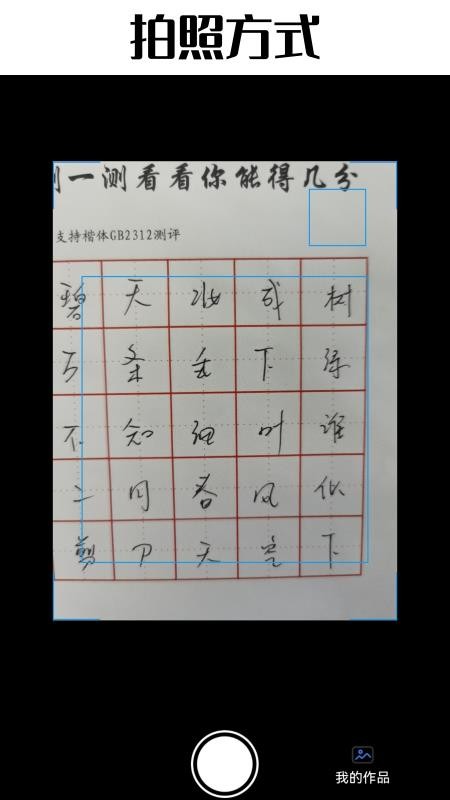 拍照方式
一测看看你能得几分
支持楷体GB2312测评
碧天妆成树
万条垂下绿
不知细叶谁
二月春风似
剪刀天空下
我的作品